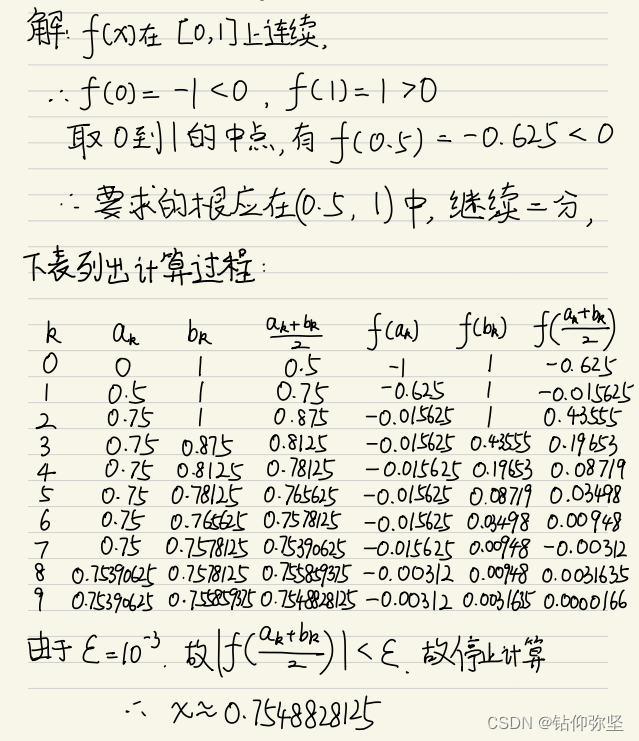 解: f(x)在 [0,1]上连续,
∴ f(0) = -1 < 0 , f(1) = 1 > 0
取 0到1的中点, 有 f(0.5) = -0.625 < 0
∴ 要求的根应在(0.5, 1)中, 继续二分,
下表列出计算过程:
k aₖ bₖ (aₖ+bₖ)/2 f(aₖ) f(bₖ) f((aₖ+bₖ)/2)
0 0 1 0.5 -1 1 -0.625
1 0.5 1 0.75 -0.625 1 -0.015625
2 0.75 1 0.875 -0.015625 1 0.43555
3 0.75 0.875 0.8125 -0.015625 0.43555 0.19653
4 0.75 0.8125 0.78125 -0.015625 0.19653 0.08719
5 0.75 0.78125 0.765625 -0.015625 0.08719 0.03498
6 0.75 0.765625 0.7578125 -0.015625 0.03498 0.00948
7 0.75 0.7578125 0.75390625 -0.015625 0.00948 -0.00312
8 0.75390625 0.7578125 0.755859375 -0.00312 0.00948 0.0031635
9 0.75390625 0.755859375 0.7548828125 -0.00312 0.0031635 0.0000166
由于 ε=10⁻³. 故|f((aₖ+bₖ)/2)| < ε. 故停止计算
∴ x≈0.7548828125
CSDN @钻仰弥坚